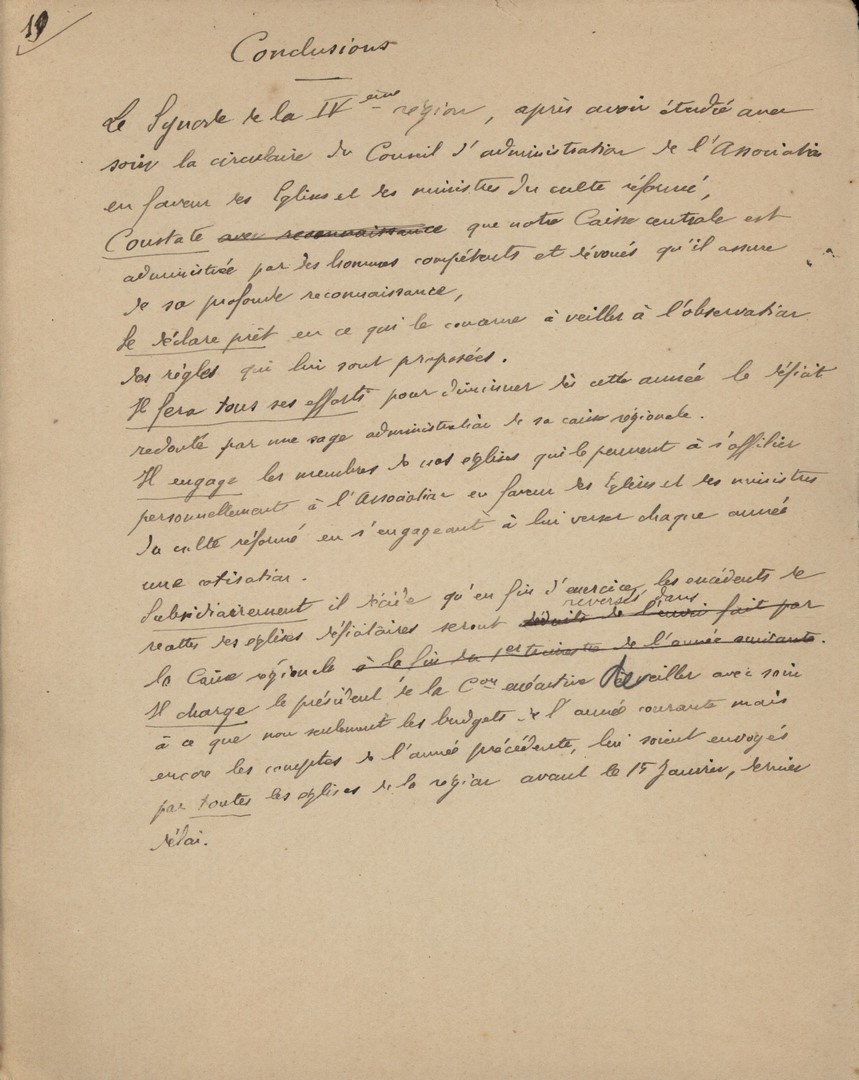 19
Conclusions
Le Synode de la IV ème région, après avoir étudié avec
soin la circulaire du Conseil d'administration de l'Association
en faveur des Eglises et des ministres du culte réformé,
Constate avec reconnaissance que notre Caisse centrale est
administrée par des hommes compétents et dévoués qu'il assure
de sa profonde reconnaissance,
Se déclare prêt en ce qui le concerne à veiller à l'observation
des règles qui lui sont proposées.
Il fera tous ses efforts pour diminuer dès cette année le déficit
redouté par une sage administration de sa caisse régionale.
Il engage les membres de nos églises qui le peuvent à s'affilier
personnellement à l'Association en faveur des Eglises et des ministres
du culte réformé en s'engageant à lui verser chaque année
une cotisation.
Subsidiairement il décide qu'en fin d'exercice, les excédents de
reversés dans
recettes des églises déficitaires seront déduits de l'envoi fait par
la Caisse régionale à la fin du 1er trimestre de l'année suivante.
Il charge le président de la Con exécutive de veiller avec soin
à ce que non seulement les budgets de l'année courante mais
encore les comptes de l'année précédente, lui soient envoyés
par toutes les églises de la région avant le 15 Janvier, dernier
délai.